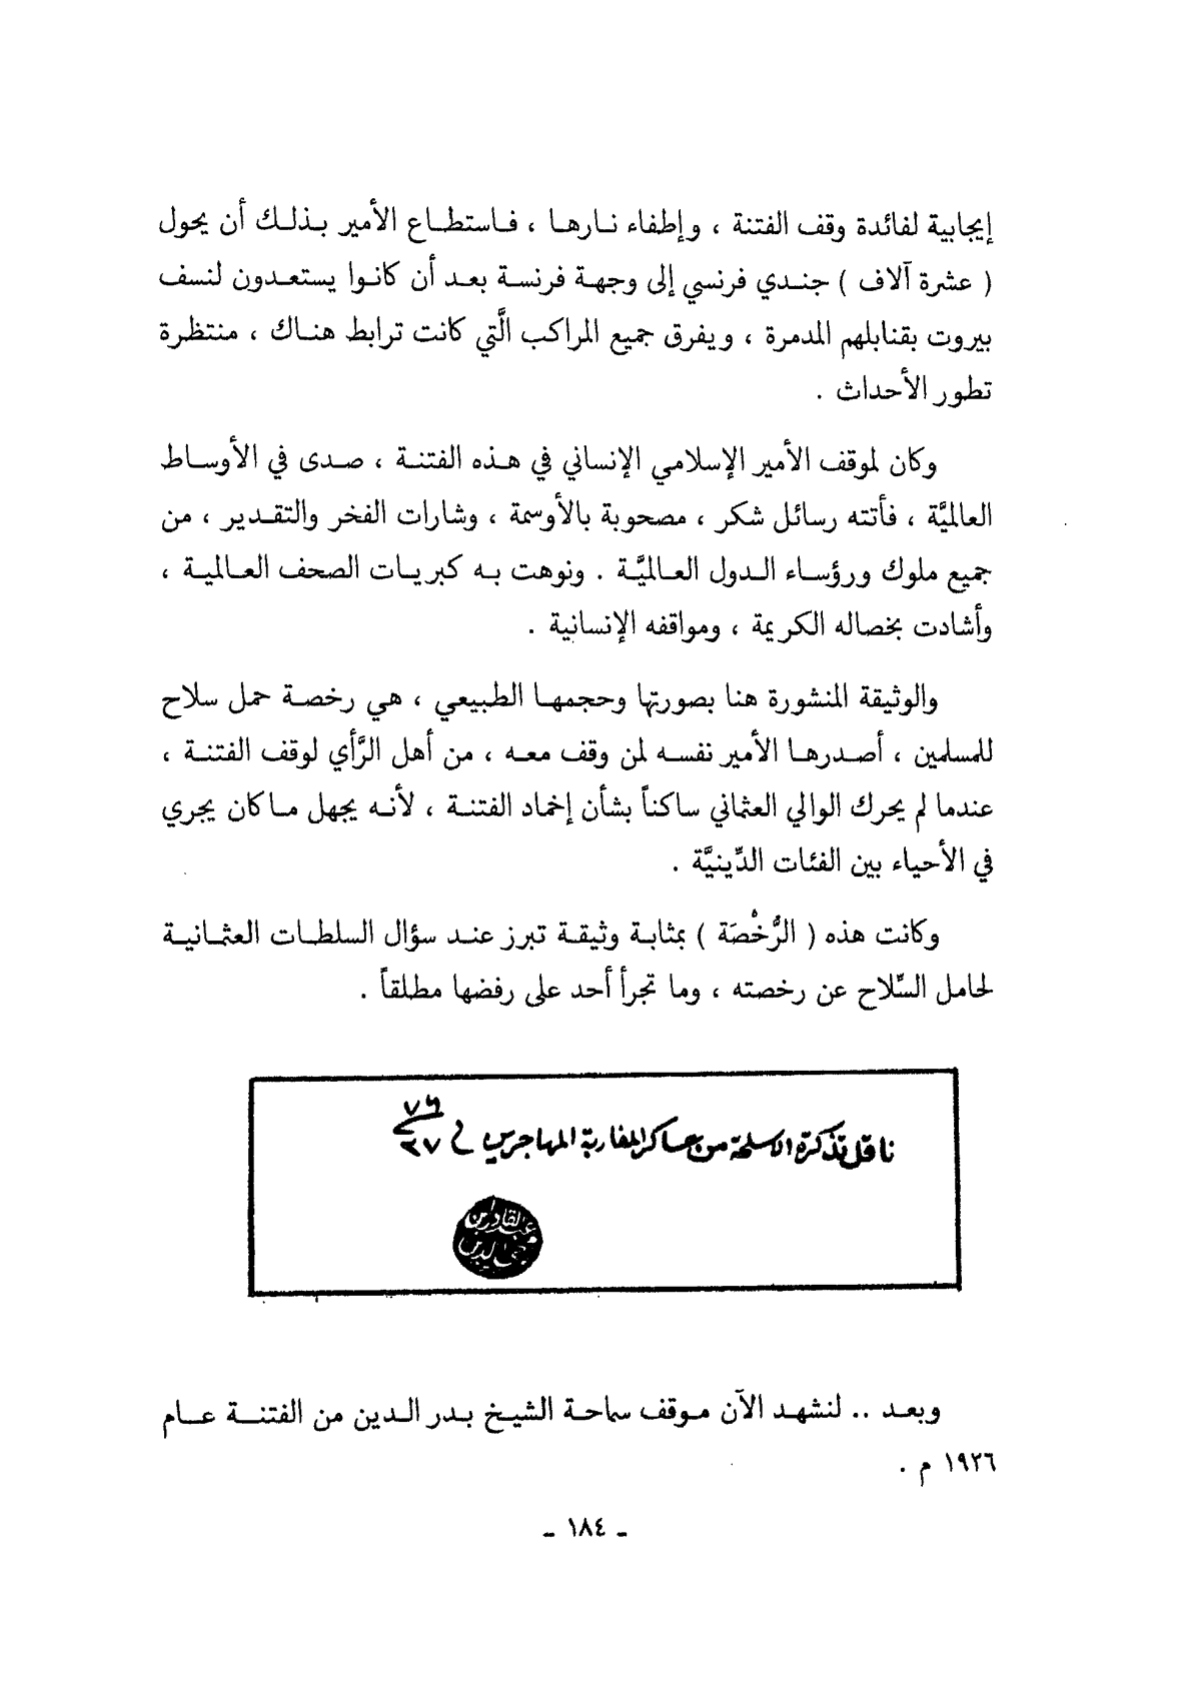 إيجابية لفائدة وقف الفتنة ، وإطفاء نارها ، فاستطاع الأمير بذلك أن يحول
( عشرة آلاف ) جندي فرنسي إلى وجهة فرنسة بعد أن كانوا يستعدون لنسف
بيروت بقنابلهم المدمرة ، ويفرق جميع المراكب الَّتي كانت ترابط هناك ، منتظرة
تطور الأحداث .
وكان لموقف الأمير الإسلامي الإنساني في هذه الفتنة ، صدى في الأوساط
العالميَّة ، فأتته رسائل شكر ، مصحوبة بالأوسمة ، وشارات الفخر والتقدير ، من
جميع ملوك ورؤساء الدول العالميَّة . ونوهت به كبريات الصحف العالمية ،
وأشادت بخصاله الكريمة ، ومواقفه الإنسانية .
والوثيقة المنشورة هنا بصورتها وحجمها الطبيعي ، هي رخصة حمل سلاح
للمسلمين ، أصدرها الأمير نفسه لمن وقف معه ، من أهل الرَّأي لوقف الفتنة ،
عندما لم يحرك الوالي العثماني ساكناً بشأن إخماد الفتنة ، لأنه يجهل ما كان يجري
في الأحياء بين الفئات الدِّينيَّة .
وكانت هذه ( الرُّخْصَة ) بمثابة وثيقة تبرز عند سؤال السلطات العثمانية
لحامل السِّلاح عن رخصته ، وما تجرأ أحد على رفضها مطلقاً .
ناقل تذكرة الاسلحة من عساكر المغاربة المهاجرين في
عبد القادر بن
محي الدين
وبعد .. لنشهد الآن موقف سماحة الشيخ بدر الدين من الفتنة عام
١٩٣٦ م .
ـ ١٨٤ ـ